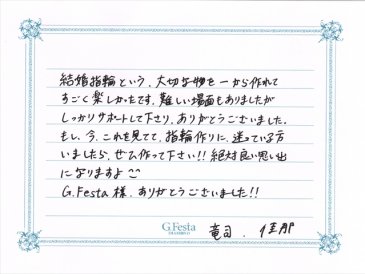 結婚指輪という、大切な物を一から作れて
すごく楽しかったです。難しい場面もありましたが
しっかりサポートして下さり、ありがとうございました。
もし、今、これを見てて、指輪作りに、迷っている方
いましたら、ぜひ作って下さい!! 絶対良い思い出
になりますよ
G.Festa 様、ありがとうございました!!
G.Festa
竜司、佳那